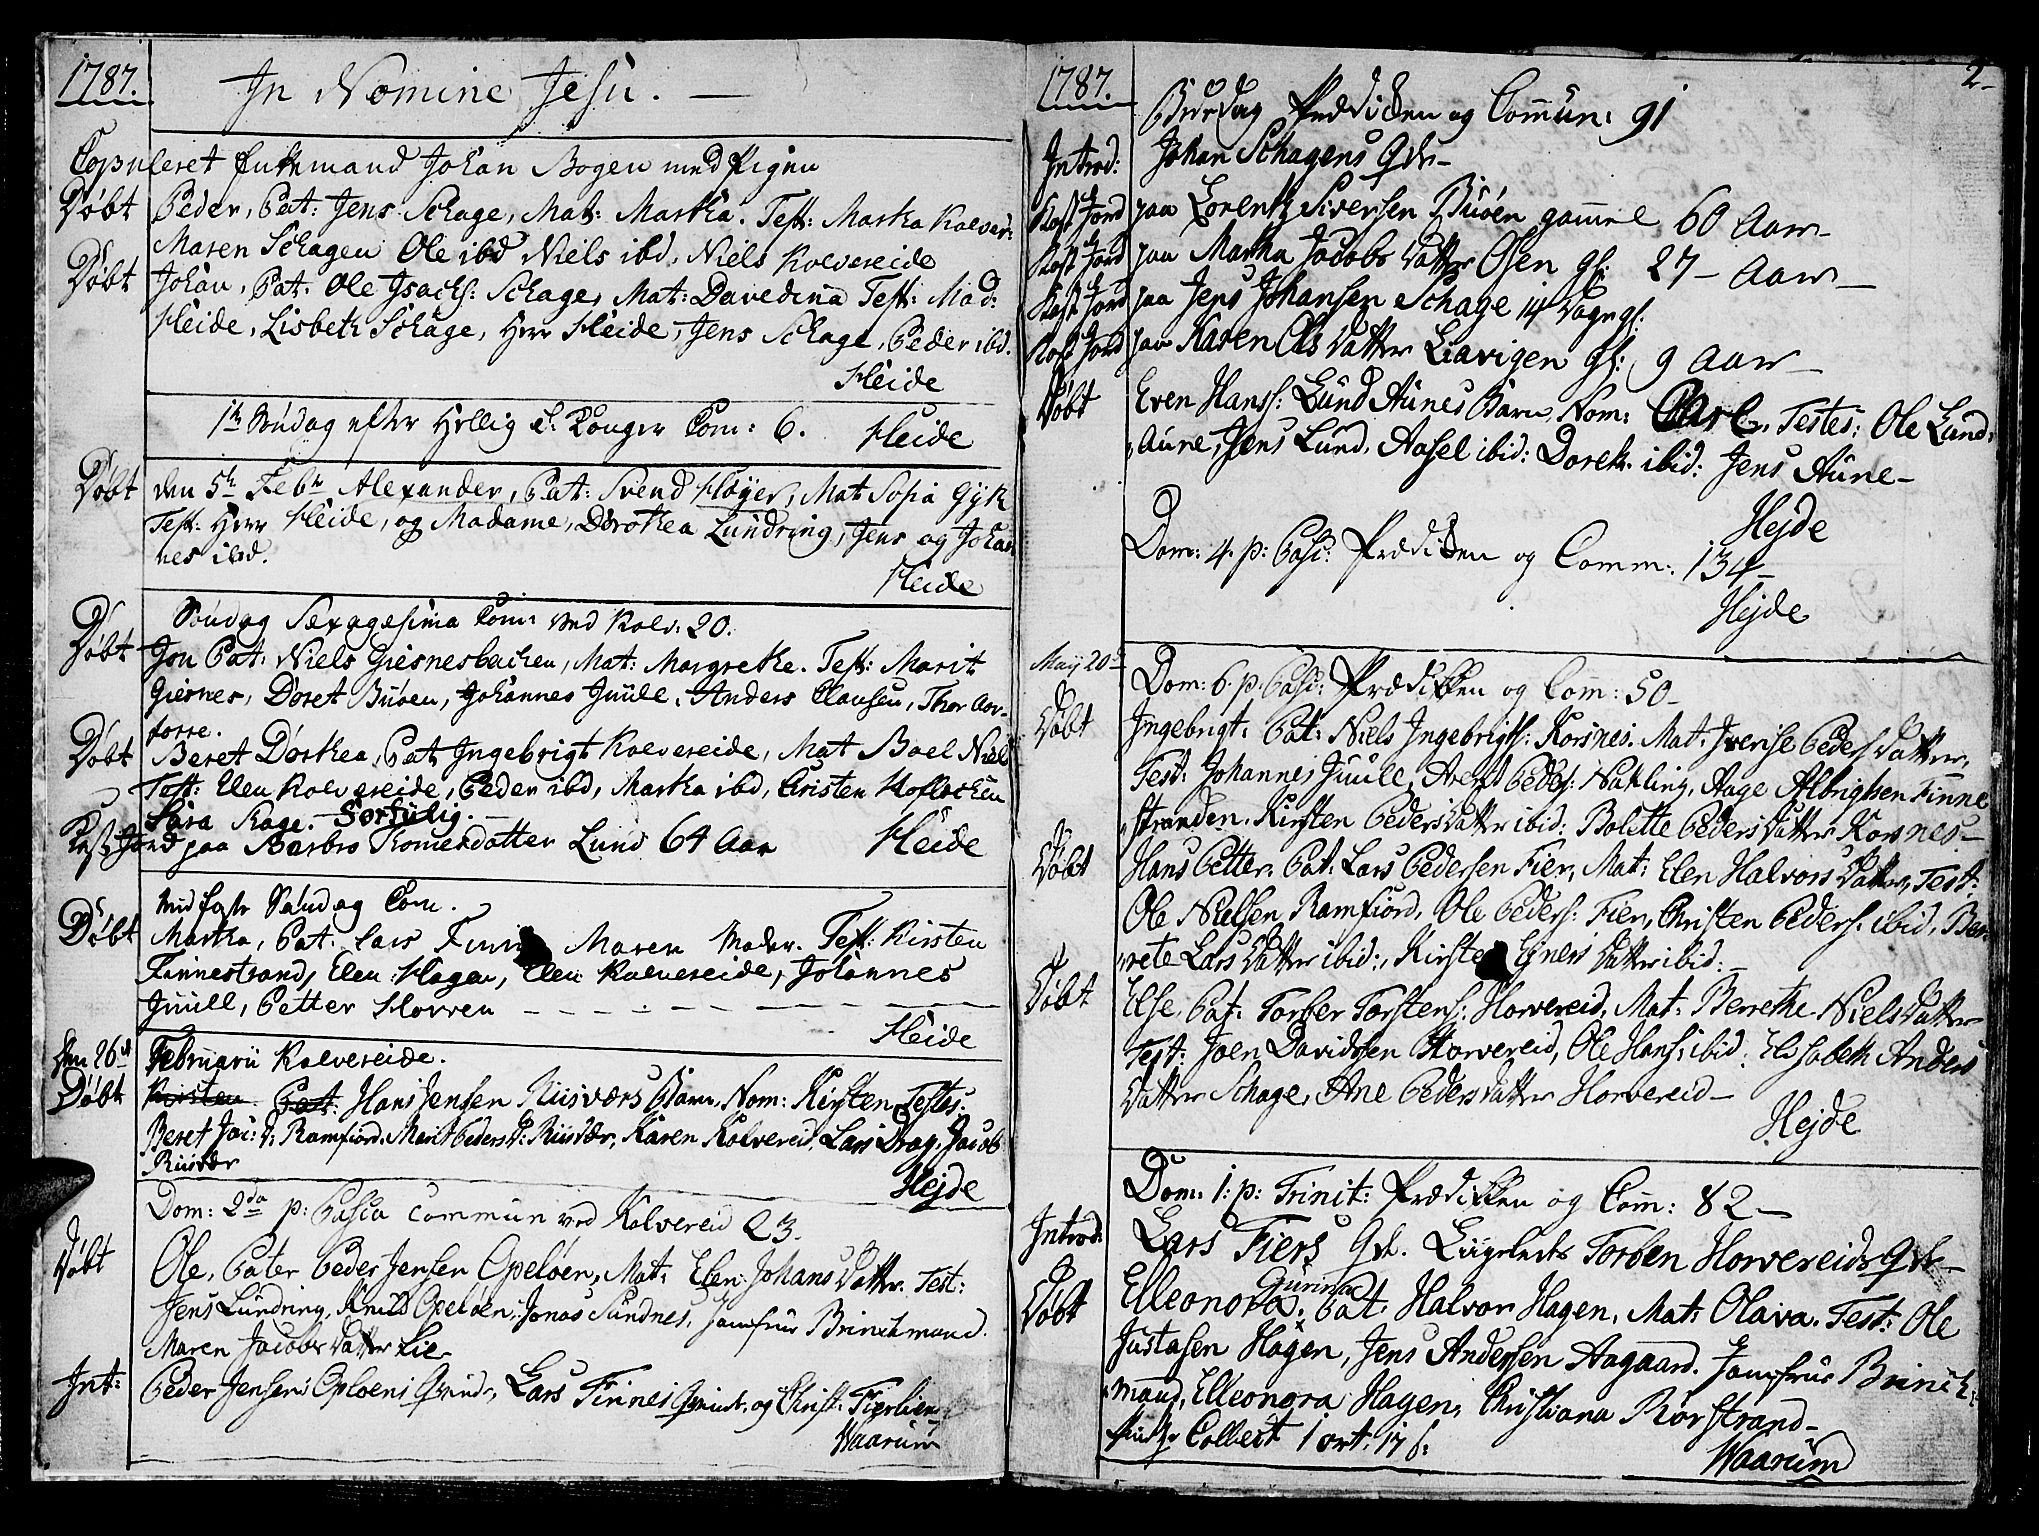 1787.
In Nomine Jesu. —
Copuleret Enkemand Johan Bogen med Pigen
Døbt Peder, Pat: Jens Schage, Mat: Martha. Test: Martha Kolver:
Maren Schagen Ole ibd Niels ibd, Niels Kolvereide
Døbt Johan, Pat: Ole Isachs: Schage, Mat: Davedina Test: Mad:
Heide, Lisbeth Schage, Herr Heide, Jens Schage, Peder ibd.
Heide
1te Søndag efter Hellig 3 Konger Com: 6. Heide
Døbt den 5te Febr Alexander, Pat: Svend Høyer, Mat Sofia Gyth
Test: Herr Heide, og Madame, Dorothea Lundring, Jens og Johan
nes ibd.
Heide
Søndag Sexagesima Com: ved Kolv: 20.
Døbt Jon Pat: Niels Giesnesbachen, Mat: Margrethe. Test: Marit
Giesnes, Doret Buøen, Johannes Juule, Anders Clausen, Thor Aor-
torre.
Døbt Beret Dorthea, Pat Ingebrigt Kolvereide, Mat Boel Niels
Test: Elen Kolvereide, Peder ibd, Martha ibd, Cristen Hoflochen
Sara Kage.
Kast Jord paa Barbro Thomesdatter Lund 64 Aar Heide
Midfaste Søndag Com.
Døbt Martha, Pat: Lars Finne Maren Moder. Test: Kirsten
Finnestrand, Elen Hagen, Elen Kolvereide, Johannes
Juull, Petter Horven - - - - - - -
Heide
Den 26de Februarii Kolvereide.
Døbt Kirsten Pat: Hans Jensen Riisværs Barn, Nom: Kirsten Testes:
Beret Jac: D: Ramfiord, Marit Peders D: Riisvær, Karen Kolvereid, Lars Drag, Jacob
Riisvær
Hejde
Dom: 2da p: Pasca Commun ved Kolvereid 23.
Døbt Ole, Pater Peder Jensen Opeløen, Mat: Elen Johans Datter. Test:
Jens Lundring, Knud Opeløen, Jonas Sundnes, Jomfrue Brinchmand.
Maren Jacobs Datter Lie-
Int: Peder Jensens Opløens Qvinde, Lars Finnes Qvinde, og Christ: Fierlien
Waarum
1787. 2-
Buedag Prædiken og Commun: 91
Introd: Johan Schagens Qde-
Kast Jord paa Lorentz Siversen Buøen gammel 60 Aar-
Kast Jord paa Martha Jacobs Datter Osen gl: 27- Aar-
Kast Jord paa Jens Johansen Schage 14 Dage gl:
Kast Jord paa Karen Ols Datter Liavigen gl: 9 Aar-
Døbt Even Hanss: Lund Aunes Barn, Nom: Carl, Testes: Ole Lund,
Aune, Jens Lund, Aasel ibid: Doreth. ibid: Jens Aune-
Hejde
Dom: 4. p: Pasc: Prædiken og Comm: 134-
Hejde
Maij 20de Dom: 6. p. Pasc: Prædikken og Com: 50-
Døbt Ingebrigt: Pat: Niels Ingebrigts: Korsnes. Mat: Iverise Peders Datter,
Test: Johannes Juull, Arent Peders: Nakling, Aage Albrigtsen Finne
stranden. Kirsten Peders Datter ibid: Bolette Peders Datter Korsnes-
Døbt Hans Petter. Pat: Lars Pedersen Fier, Mat: Elen Halvors Datter, Test:
Ole Nielsen Ramfiord, Ole Peders: Fier, Christen Peders: ibid, Ber-
rete Lars Datter ibid:, Kirsten Egners Datter ibid:-
Døbt Else, Pat: Torber Torstens: Horvereid, Mat: Berrethe Niels Datter
Test: Joen Davidssen Horvereid, Ole Hans: ibid: Elisabeth Anders
Datter Schage, Ane Peders Datter Horvereid-
Hejde
Dom: 1: p: Trinit: Prædikken og Com: 82-
Introd: Lars Fiers Qde. Liigeledes Torben Horvereids Qde-
Døbt Elleonora Gurina. Pat: Halvor Hagen, Mat: Olava. Test: Ole
Justasen Hagen, Jens Andersen Aagaard. Jomfrue Brinch-
mand, Elleonora Hagen, Christiana Rørstrand-
Collect 1 ort. 17 s:
Waarum